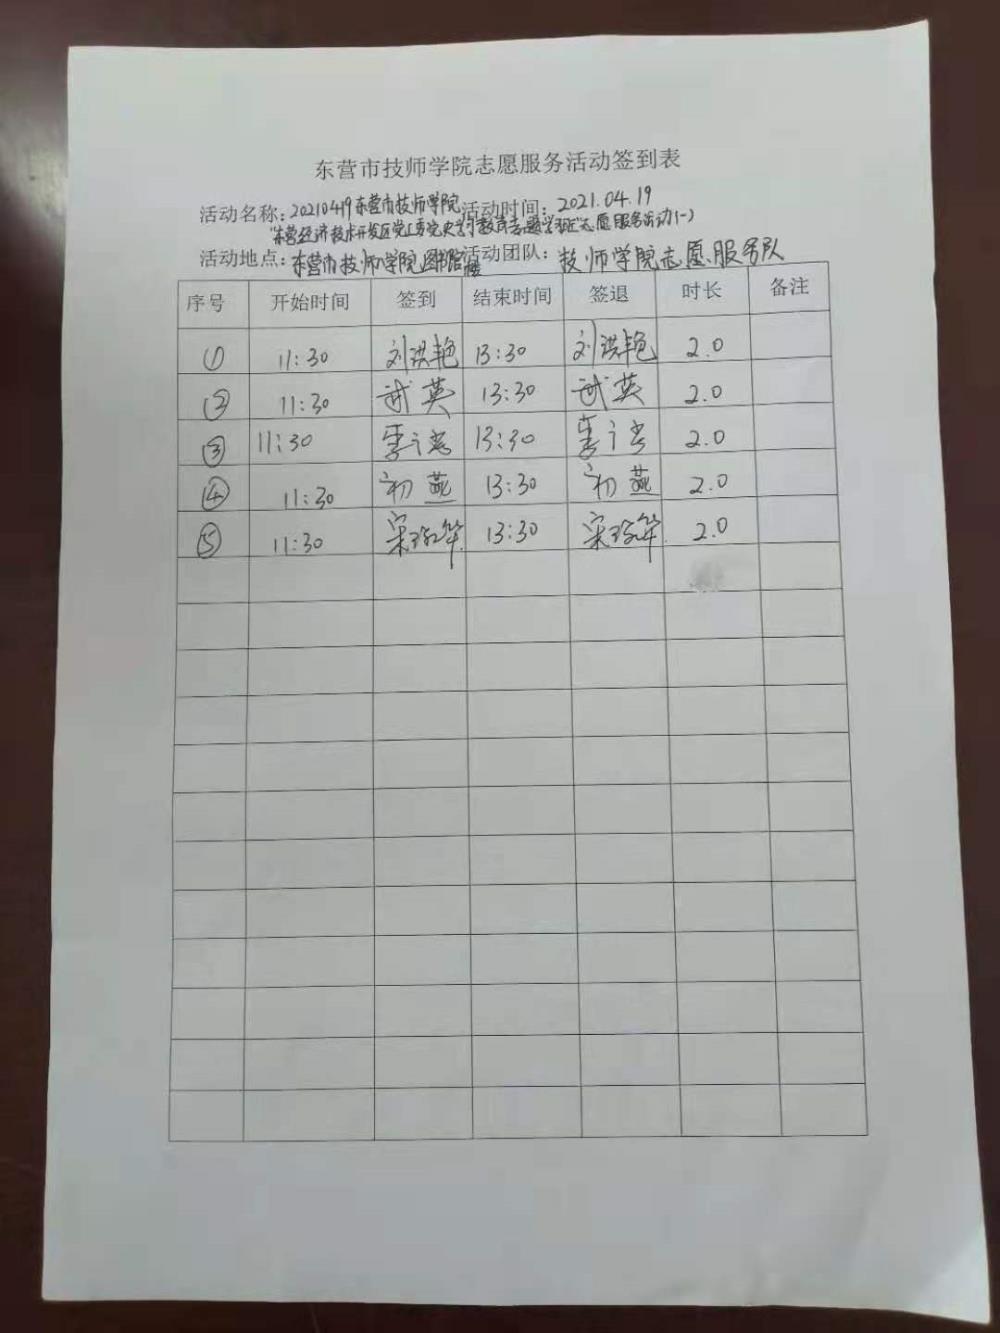 东营市技师学院志愿服务活动签到表
活动名称：20210419东营市技师学院 活动时间：2021.04.19
"东营经济技术开发区党工委党史学习教育专题学习班"志愿服务活动(一)
活动地点：东营市技师学院图书馆楼 活动团队：技师学院志愿服务队
序号 开始时间 签到 结束时间 签退 时长 备注
① 11:30 刘洪艳 13:30 刘洪艳 2.0
② 11:30 武英 13:30 武英 2.0
③ 11:30 季 13:30 季 2.0
④ 11:30 初燕 13:30 初燕 2.0
⑤ 11:30 宋 13:30 宋 2.0